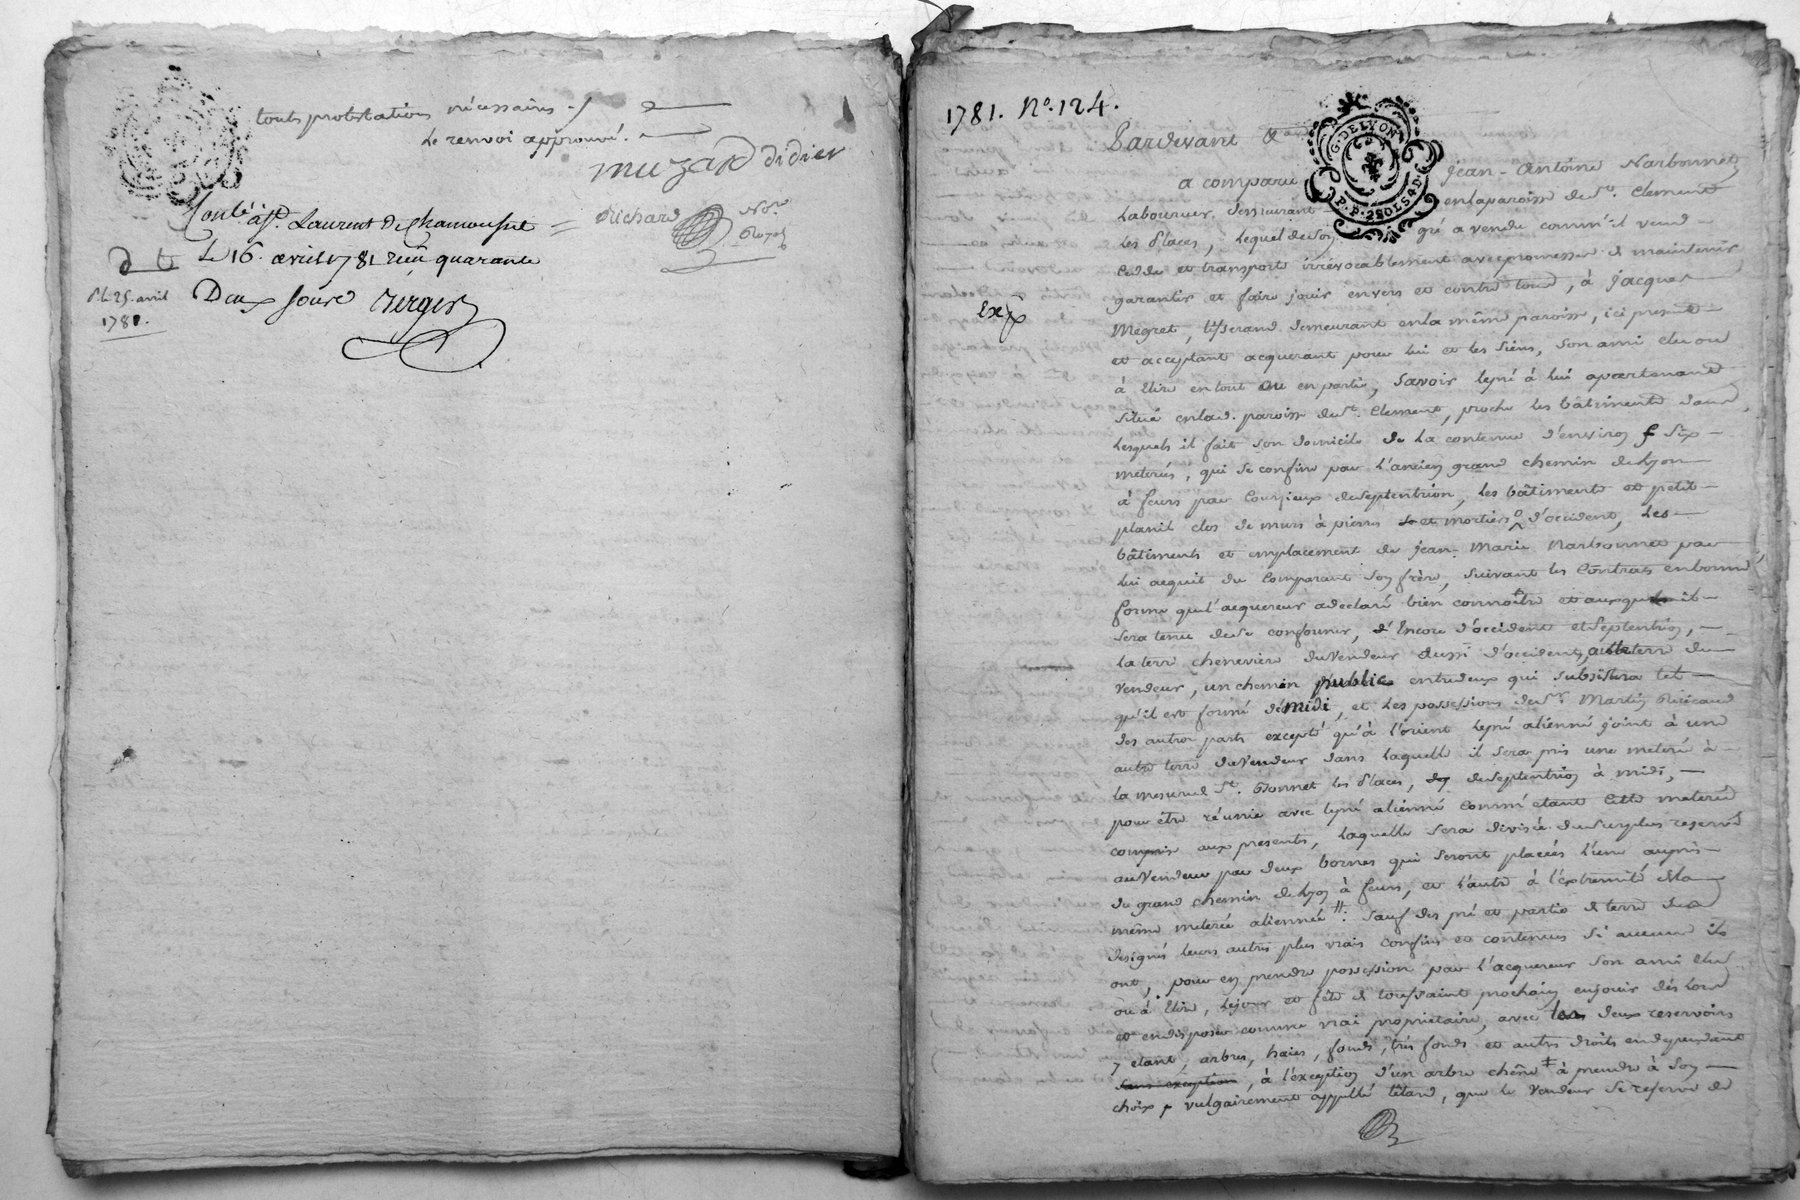 touts protestations nécessaires ./.
Le renvoi approuvé.
muzard didier
Richard
Not.re Royal
Conlé à St. Laurent de Chamousset
Le 16. avril 1781 reçu quarante
Deux sous Verger
d t
S. le 25. avril
1781.
1781. No. 124.
Pardevant &
G. DE LYON
P. P. 2 SOLS 4 D.
a comparu Jean-Antoine Narbonnet
Laboureur demeurant en la paroisse de St. Clement
les Places, lequel de son gré a vendu comm'il vend
Cede et transporte irrévocablement avec promesse de maintenir
garantir et faire jouir envers et contre tous, à Jacques
Exp
Megret, tisserand demeurant en la même paroisse, ici present
et acceptant acquerant pour lui et les siens, son ami elu ou
à Elire en tout ou en partie, Savoir le pré à lui apartenant
situé en lad. paroisse de St. Clement, proche les bâtiments dans
lesquels il fait son domicile de la contenue d'environ six
meterées, qui se confine par l'ancien grand chemin de Lyon
à feurs par Courzieux de septentrion, les bâtiments et petit
clos de murs à pierre et mortiers d'occident, les
bâtiments et emplacement de Jean-Marie Narbonnet par
lui acquit du Comparant son frère, suivant les Contrats en bonne
forme que l'acquereur a declaré bien connoître et auxquels il
sera tenu de se conformer, d'Encore d'occident et septentrion,
la terre cheneviere du Vendeur aussi d'occident, autre terre du
vendeur, un chemin public entredeux qui subsistera tel
qu'il est formé de midi, et les possessions de Sr. Martin Ricard
des autres parts excepté qu'à l'orient le pré alienné joint à une
autre terre du Vendeur dans laquelle il sera pris une meterée à
la mesure de St. Bonnet les Places, de septentrion à midi,
pour être réunie avec le pré alienné comm'etant cette meterée
comprise aux presentes, laquelle sera divisée du surplus reservé
au Vendeur par deux bornes qui seront placées l'une auprès
du grand chemin de Lyon à feurs, et l'autre à l'extremité de la
même meterée aliennée #. Sauf des pré et partie de terre
designés leurs autres plus vrais Confins et contenues si aucuns ils
ont, pour en prendre possession par l'acquereur son ami elu
ou à Elire, le jour et fête de toussaint prochain en jouir dès lors
et en disposer comme vrai proprietaire, avec les deux reservoirs
y etant, arbres, haies, fonds, très fonds et autres droits en dependant
sans exception, à l'exception d'un arbre chêne ‡ à prendre à son
choix, vulgairement appellé têtard, que le Vendeur se reserve de